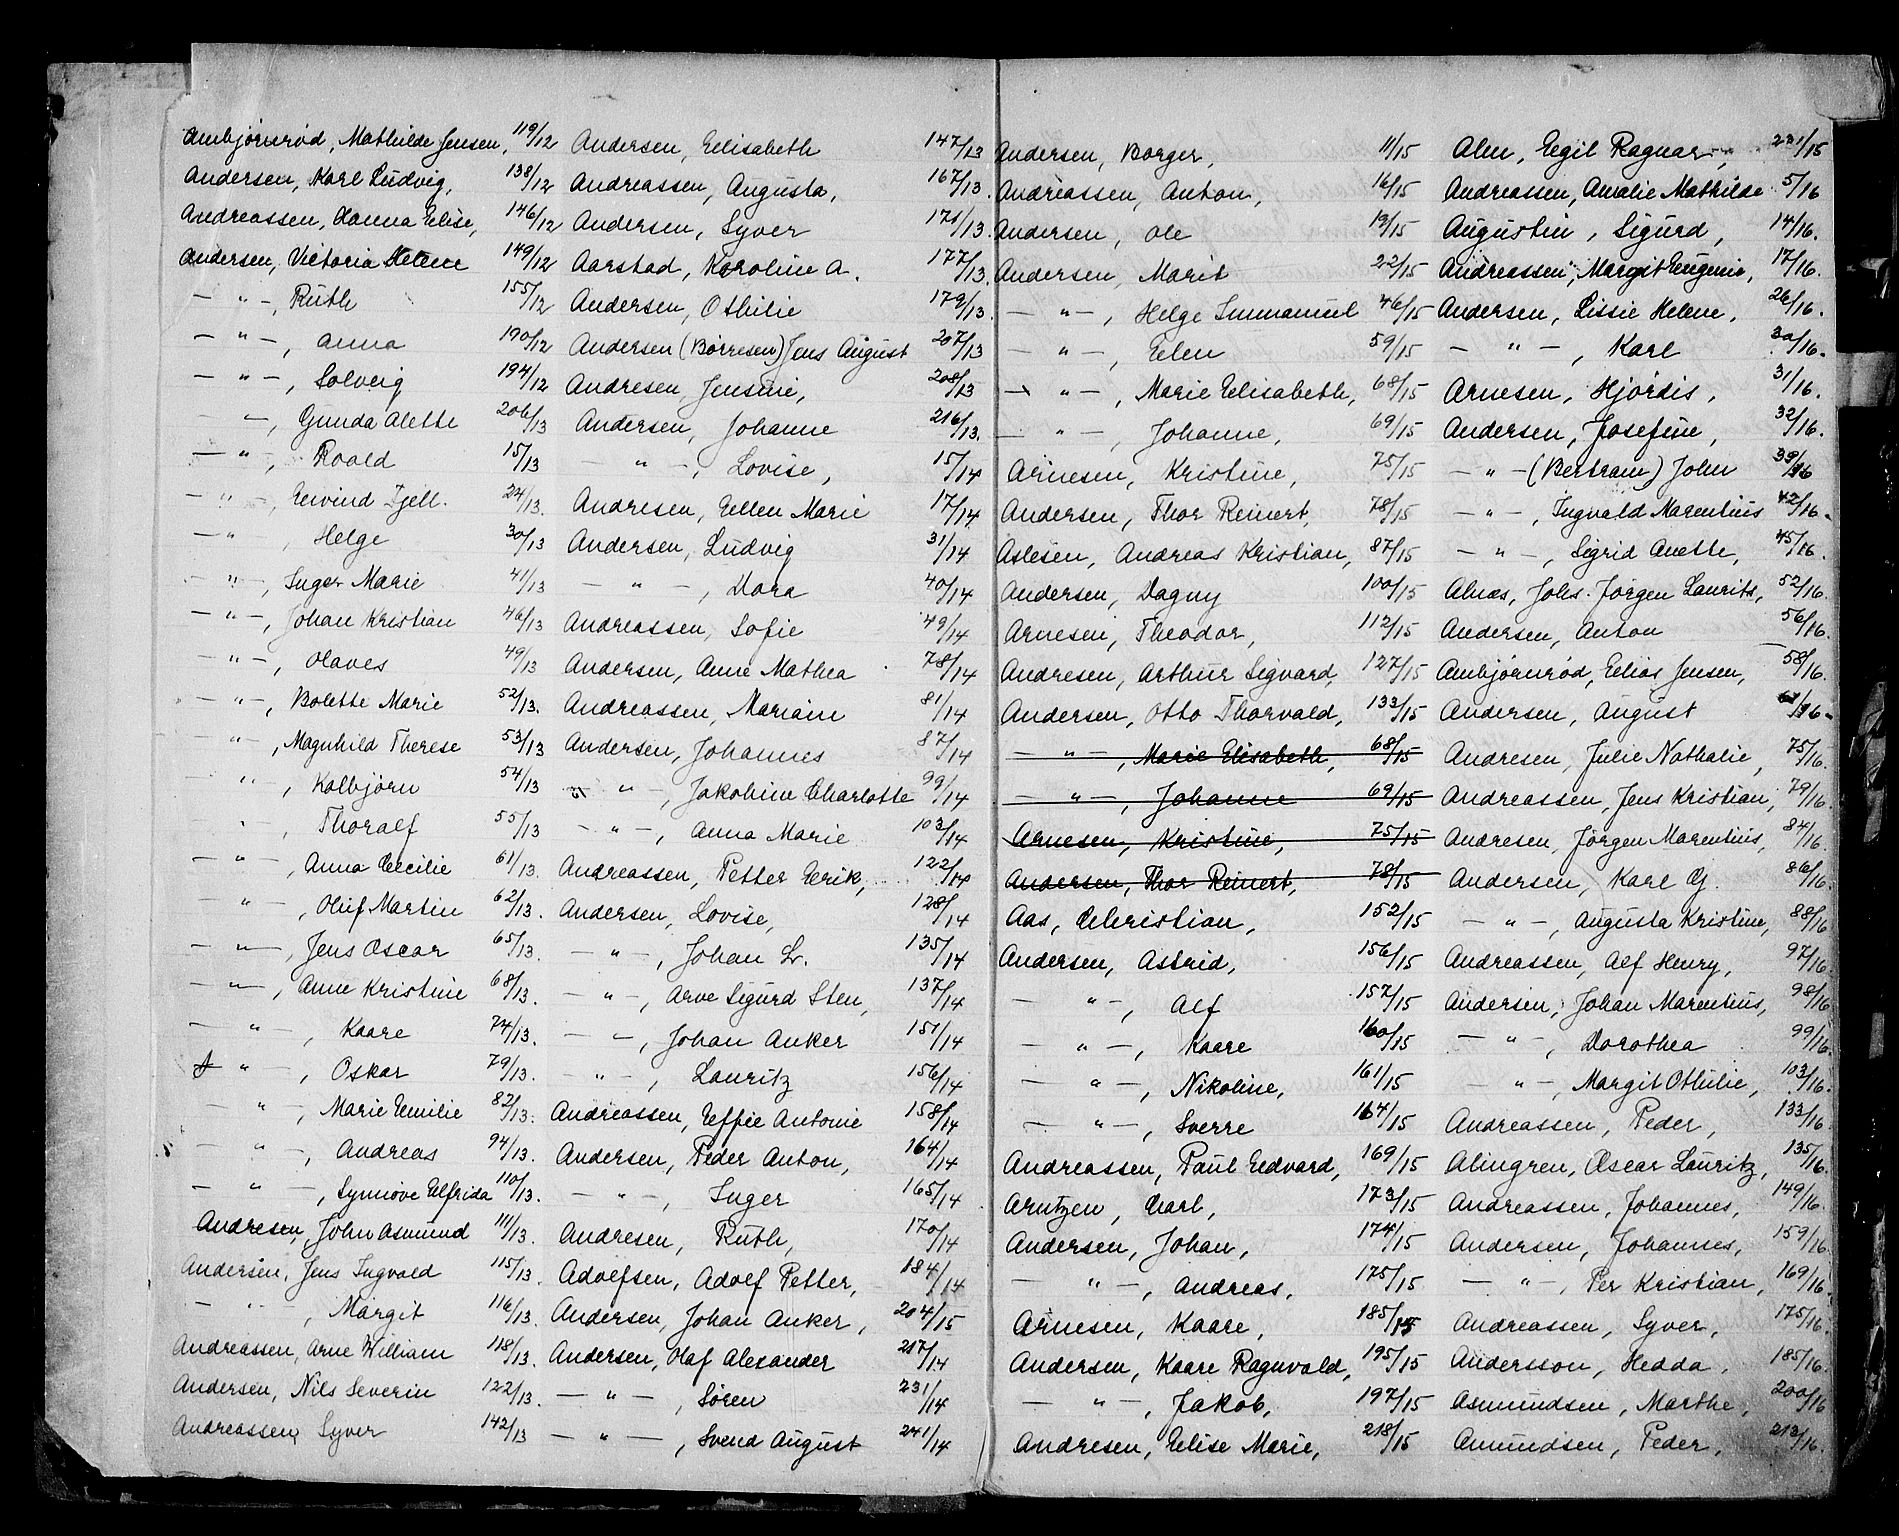 Ambjörnröd, Mathilde Jensen, 119/12
Andersen, Karl Ludvig, 138/12
Andreassen, Hanna Elise, 146/12
Andersen, Victoria Helene 149/12
— " —, Ruth 155/12
— " —, Anna 190/12
— " —, Solveig 194/12
" —, Gunda Alette 206/13
— " —, Roald 15/13
— " —, Eivind Kjell. 24/13.
— " , Helge 30/13
— " —, Inger Marie 41/13
— " —, Johan Kristian 46/13
— " —, Olaves 49/13
— " —, Bolette Marie 52/13.
— " —, Magnhild Therese 53/13
— " , Kolbjörn 54/13
" , Thoralf 55/13
— " —, Anna Cecilie 61/13.
— " —, Oluf Martin 62/13.
— " —, Jens Oscar 65/13.
— " —, Anne Kristine 68/13.
— " —, Kaare 74/13.
" —, Oskar 79/13.
— " —, Marie Emilie 82/13.
— " —, Andreas 94/13.
— " —, Synnöve Elfrida 110/13.
Andresen, John Asmund 111/13.
Andersen, Jens Ingvald 115/13.
— " —, Margit 116/13.
Andreassen, Arne William 118/13.
Andersen, Nils Severin 122/13.
Andreassen, Syver 142/13
Andersen, Elisabeth 147/13
Andreassen, Augusta, 167/13.
Andersen, Syver 171/13.
Aarstad, Karoline A. 177/13.
Andersen, Othilie 179/13.
Andersen (Börresen) Jens August 207/13
Andresen, Jensine, 208/13
Andersen, Johanne 216/13.
— " —, Lovise, 15/14
Andresen, Ellen Marie 17/14
Andersen, Ludvig 31/14
— " —, Dora 40/14
Andreassen, Sofie 49/14
Andersen, Anne Mathea 78/14
Andreassen, Mariam 81/14
Andersen, Johannes 87/14
— " —, Jakobine Charlotte 99/14
— " —, Anna Marie 103/14
Andreassen, Petter Erik, 122/14
Andersen, Lovise, 128/14
— " —, Johan L. 135/14
— " —, Arve Sigurd Sten, 137/14
— " —, Johan Anker 151/14
— " —, Lauritz 156/14
Andreassen, Effie Antonie 158/14
Andersen, Peder Anton, 164/14
— " —, Inger 165/14.
Andresen, Ruth, 170/14
Adolfsen, Adolf Petter, 184/14
Andersen, Johan Anker, 204/15
Andersen, Olaf Alexander 217/14
— " —, Sören 231/14
— " —, Svend August 241/14
Andersen, Borger, 11/15
Andreassen, Anton, 16/15
Andersen, Ole 19/15
Andersen, Marit 22/15
— " —, Helge Immanuel 46/15
— " —, Elen 59/15
— " —, Marie Elisabeth, 68/15
— " —, Johanne, 69/15
Arnesen, Kristine, 75/15
Andersen, Thor Reinert, 78/15
Aslesen, Andreas Kristian, 87/15
Andersen, Dagny 100/15
Arnesen, Theodor, 112/15
Andresen, Arthur Sigvard, 127/15
Andersen, Otto Thorvald, 133/15
— " —, Marie Elisabeth, 68/15
— " —, Johanne 69/15
Arnesen, Kristine, 75/15
Andersen, Thor Reinert, 78/15
Aas, Christian, 152/15
Andersen, Astrid, 156/15
— " —, Alf 157/15
— " —, Kaare 160/15
— " —, Nikoline, 161/15
— " —, Sverre 164/15
Andreassen, Paul Edvard, 169/15
Arntzen, Carl, 173/15
Andersen, Johan, 174/15
— " —, Andreas, 175/15
Arnesen, Kaare, 185/15
Andersen, Kaare Ragnvald, 195/15
— " —, Jakob, 197/15
Andresen, Elise Marie, 218/15
Alm, Egil Ragnar, 231/15
Andreassen, Amalie Mathilde 5/16
Augustin, Sigurd, 14/16.
Andreassen, Margit Eugenie, 17/16.
Andersen, Lissie Helene, 26/16.
— " —, Karl 30/16.
Arnesen, Hjördis, 31/16.
Andersen, Josefine, 32/16.
— " — (Bertram) John 39/16
— " —, Ingvald Marentius 42/16.
— " —, Sigrid Anette, 45/16.
Alnæs, Johs. Jörgen Laurits, 52/16.
Andersen, Anton 56/16.
Ambjörnröd, Elias Jensen, 58/16.
Andersen, August 61/16.
Andresen, Julie Nathalie, 75/16.
Andreassen, Jens Kristian, 79/16.
Andresen, Jörgen Marentius, 84/16.
Andersen, Karl G. 86/16.
— " —, Augusta Kristine, 88/16
Andreassen, Alf Henry, 97/16.
Andersen, Johan Marentius, 98/16
— " —, Dorothea 99/16.
— " —, Margit Othilie, 103/16.
Andreassen, Peder, 133/16.
Almgren, Oscar Lauritz, 135/16.
Andreassen, Johannes, 149/16.
Andersen, Johannes, 159/16.
— " —, Per Kristian, 169/16.
Andreassen, Syver, 175/16.
Andersson, Hedda, 185/16.
Asmundsen, Marthe, 200/16
Amundsen, Peder, 212/16.